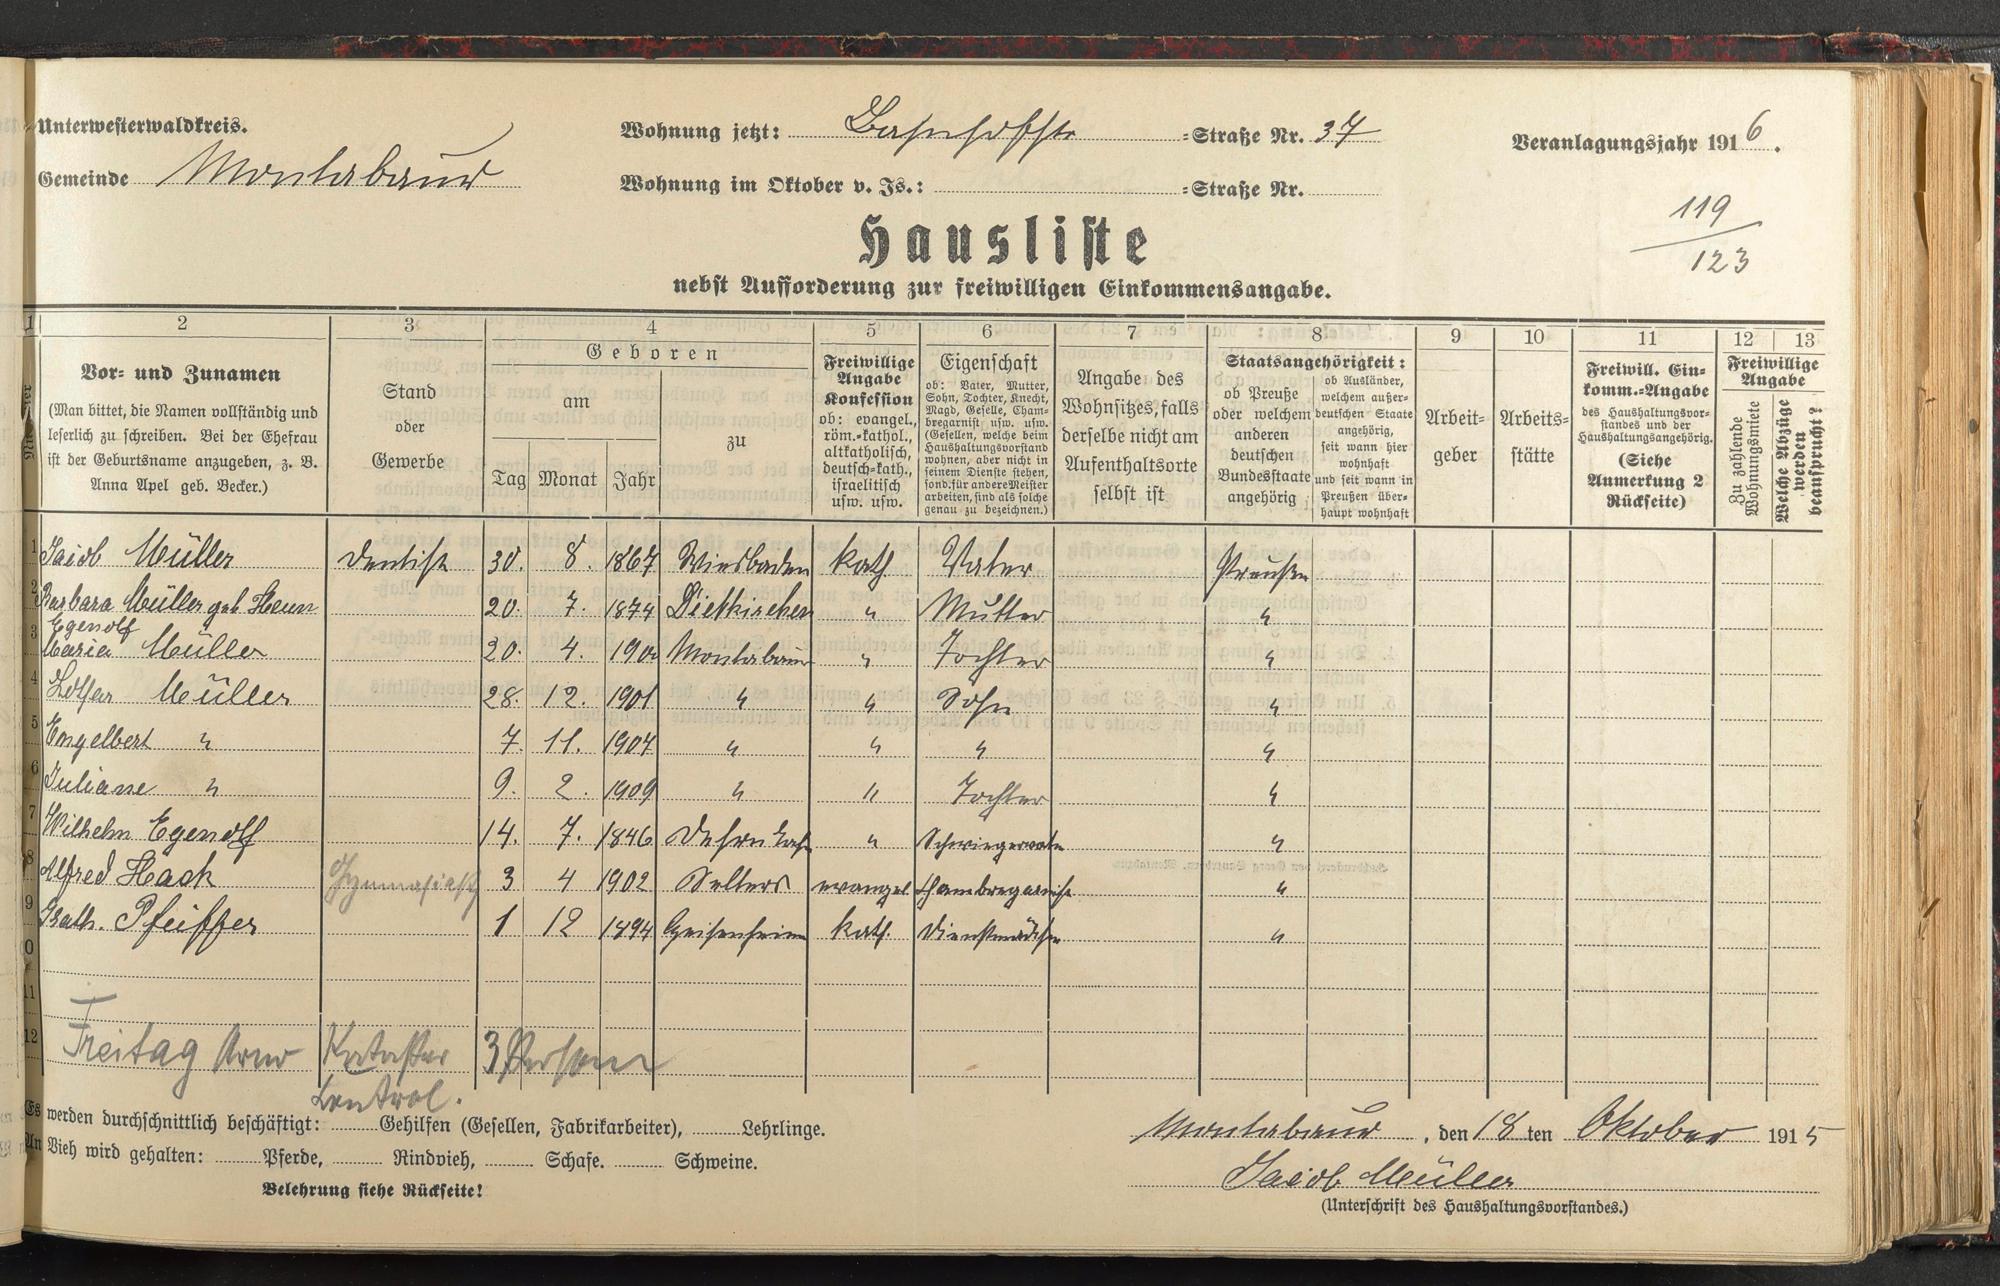 Unterwesterwaldkreis.
Gemeinde Montabaur
Wohnung jetzt: Bahnhofstr =Straße Nr. 37
Wohnung im Oktober v. Js.: =Straße Nr.
Veranlagungsjahr 1916.
119
123
Hausliste
nebst Aufforderung zur freiwilligen Einkommensangabe.
1 2 3 4 5 6 7 8 9 10 11 12 13
Vor- und Zunamen
(Man bittet, die Namen vollständig und
leserlich zu schreiben. Bei der Ehefrau
ist der Geburtsname anzugeben, z. B.
Anna Apel geb. Becker.)
Stand
oder
Gewerbe
Geboren
am
Tag Monat Jahr
zu
Freiwillige
Angabe
Konfession
ob: evangel.,
röm.-kathol.,
altkatholisch,
deutsch-kath.,
israelitisch
usw. usw.
Eigenschaft
ob: Vater, Mutter,
Sohn, Tochter, Knecht,
Magd, Geselle, Cham-
bregarnist usw. usw.
(Gesellen, welche beim
Haushaltungsvorstand
wohnen, aber nicht in
seinem Dienste stehen,
sond. für andere Meister
arbeiten, sind als solche
genau zu bezeichnen.)
Angabe des
Wohnsitzes, falls
derselbe nicht am
Aufenthaltsorte
selbst ist
Staatsangehörigkeit:
ob Preuße
oder welchem
anderen
deutschen
Bundesstaate
angehörig
ob Ausländer,
welchem außer-
deutschen Staate
angehörig,
seit wann hier
wohnhaft
und seit wann in
Preußen über-
haupt wohnhaft
Arbeit-
geber
Arbeits-
stätte
Freiwill. Ein-
komm.-Angabe
des Haushaltungsvor-
standes und der
Haushaltungsangehörig.
(Siehe
Anmerkung 2
Rückseite)
Freiwillige
Angabe
Zu zahlende
Wohnungsmiete
Welche Abzüge
werden
beansprucht?
1 Jacob Müller Dentist 30. 8. 1867 Wiesbaden kath. Vater Preußen
2 Barbara Müller geb. Heun 20. 7. 1874 Dietkirchen " Mutter "
Egenolf
3 Maria Müller 20. 4. 1900 Montabaur " Tochter "
4 Lothar Müller 28. 12. 1901 " " Sohn "
5 Engelbert " 7. 11. 1904 " " " "
6 Juliane " 9. 2. 1909 " " Tochter "
7 Wilhelm Egenolf 14. 7. 1846 " Schwiegervater "
8 Alfred Hack Gymnasiast 3 4 1902 Selters evangel Chambregarnist "
9 Kath. Pfeiffer 1 12 1894 Geisenheim kath. Dienstmädchen "
0
11
12 Freitag Arno Kataster 3 Personen
Control.
Es werden durchschnittlich beschäftigt: Gehilfen (Gesellen, Fabrikarbeiter), Lehrlinge.
An Vieh wird gehalten: Pferde, Rindvieh, Schafe. Schweine.
Belehrung siehe Rückseite!
Montabaur, den 18ten Oktober 1915
Jacob Müller
(Unterschrift des Haushaltungsvorstandes.)